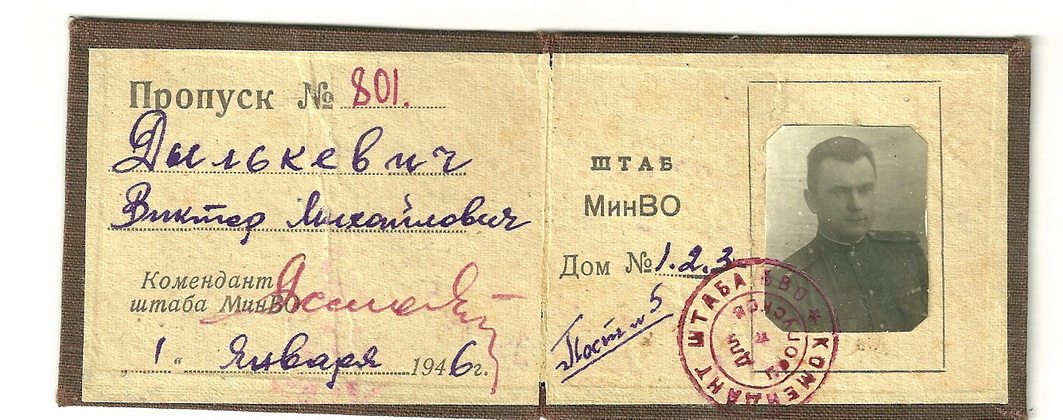 Пропуск № 801.
Дылькевич
Виктор Михайлович
Комендант
штаба МинВО
„ 1 „ Января 1946г.
ШТАБ
МинВО
Дом № 1.2.3
Пост № 5
КОМЕНДАНТ ШТАБА БВО
Для пропусков